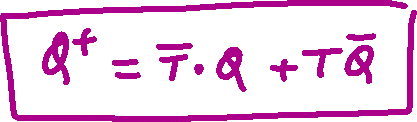 Q⁺ = T̅·Q + TQ̅